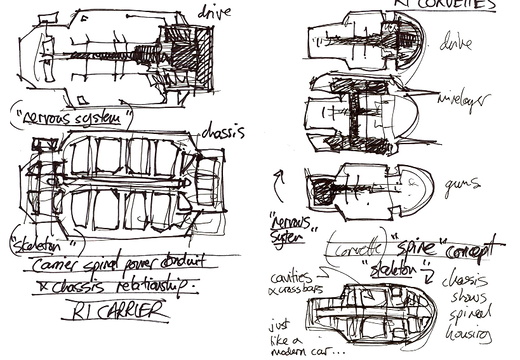 drive
"nervous system"
chassis
"skeleton"
Carrier spinal power conduit
& chassis relationship.
R1 CARRIER
R1 CORVETTES
drive
minelayer
guns
"nervous
system"
(corvette) "spine" concept
"skeleton"
cavities
& crossbars
chassis
shows
spinal
housing
just
like a
modern car...